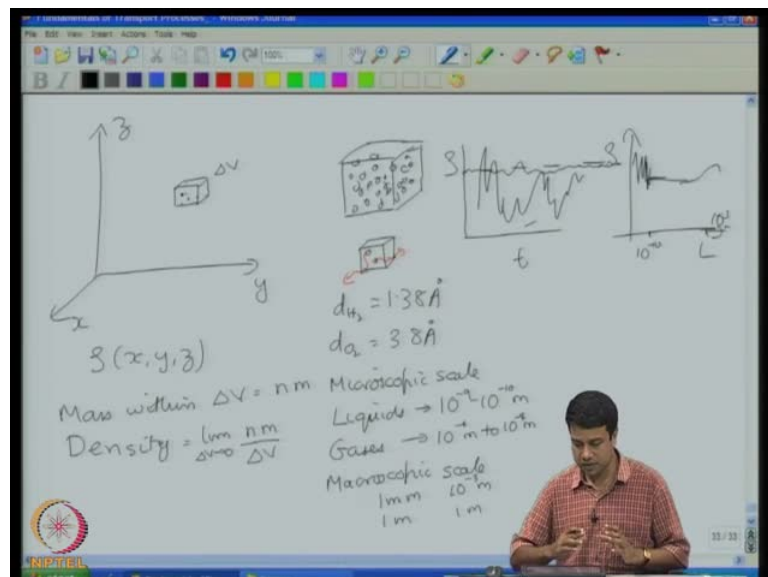 Fundamentals of Transport Processes_ - Windows Journal
File Edit View Insert Actions Tools Help
100%
B I
z
ΔV
y
x
ρ (x, y, z)
Mass within ΔV = nm
Density = lim ΔV→0 nm/ΔV
ρ
t
ρ
10⁻¹⁰
L
d_H₂ = 1.38 Å
d_O₂ = 3.8 Å
Microscopic scale
Liquids → 10⁻⁹-10⁻¹⁰ m
Macroscopic scale
1 mm 10⁻³ m
1 m 1 m
33 / 33
NPTEL